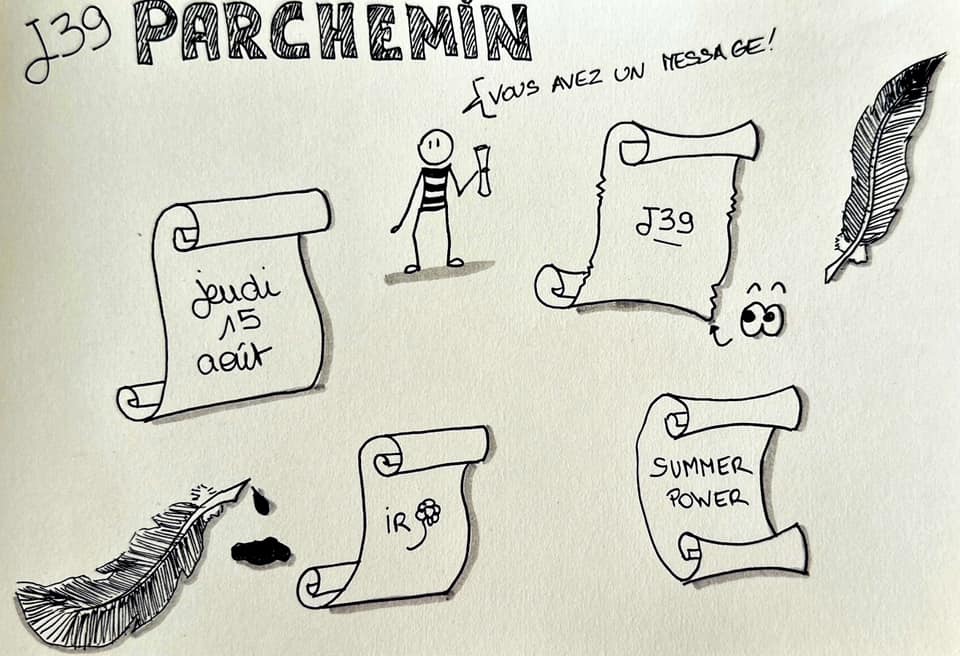 J39 PARCHEMIN
VOUS AVEZ UN MESSAGE!
jeudi
15
août
J39
iR
SUMMER
POWER